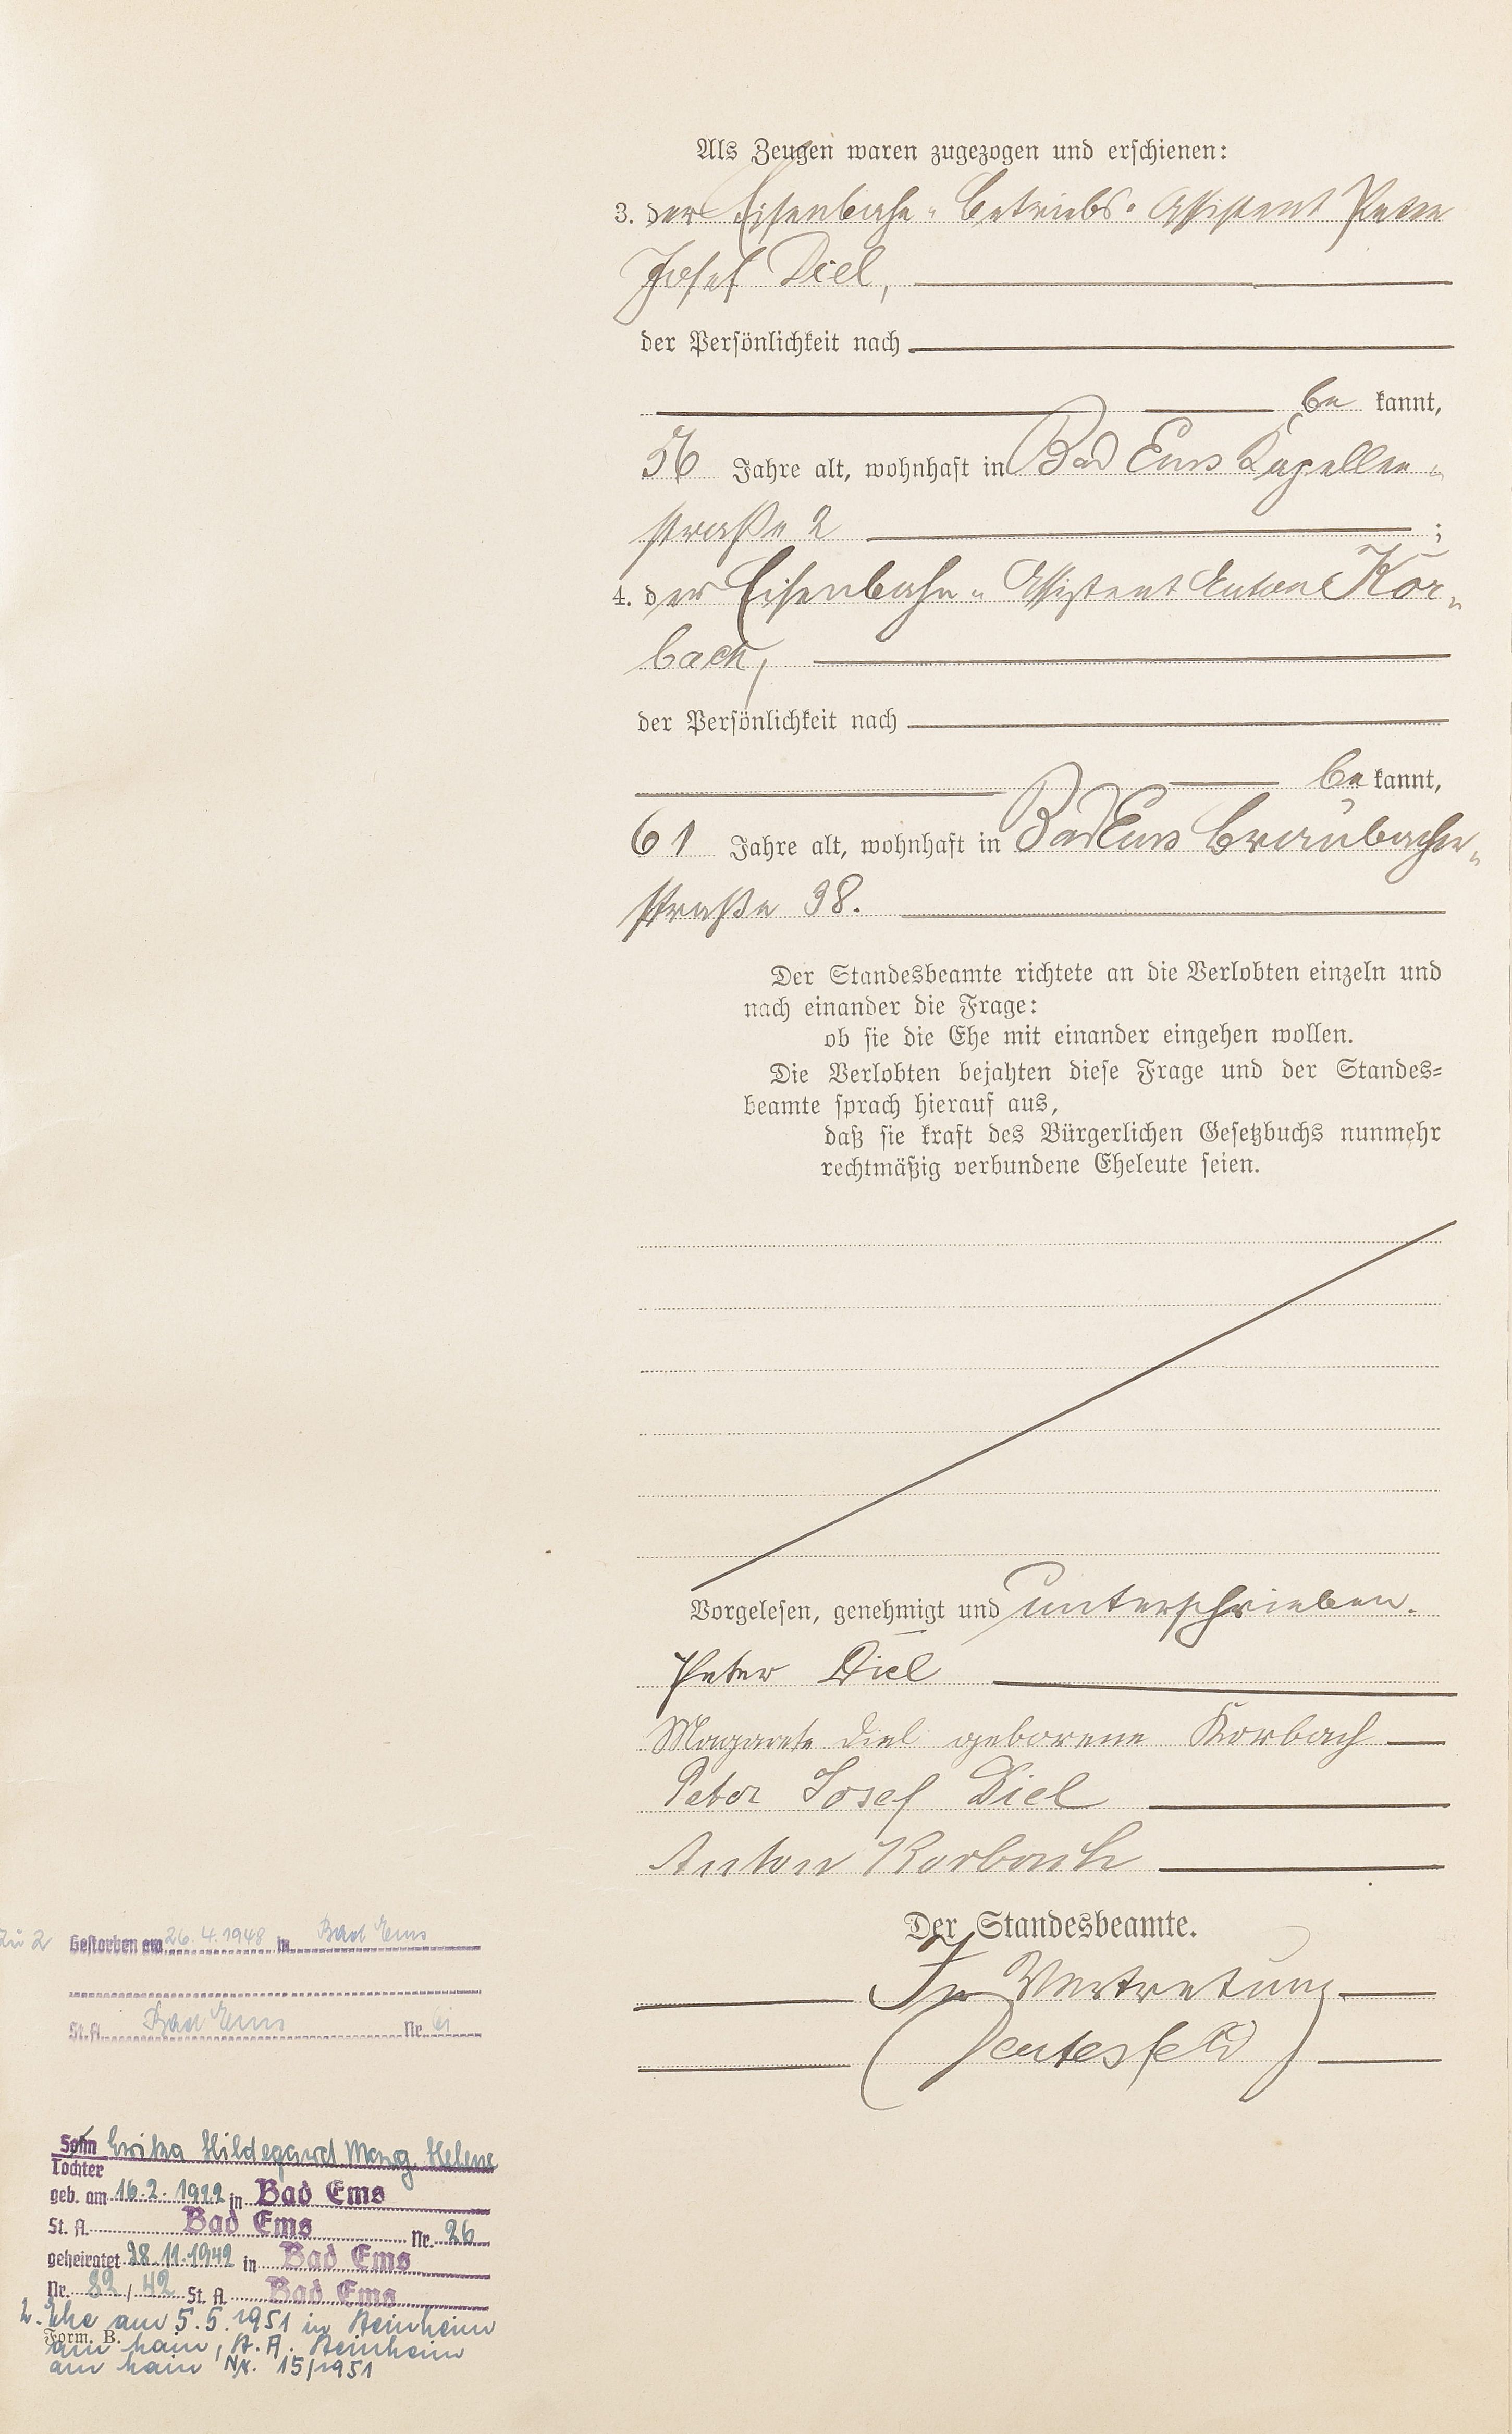 Als Zeugen waren zugezogen und erschienen:
3. der Eisenbahn-Betriebs-Assistent Peter
Josef Diel,
der Persönlichkeit nach
be kannt,
56 Jahre alt, wohnhaft in Bad Ems Kapellen-
straße 2 ;
4. der Eisenbahn-Assistent Anton Kor-
bach,
der Persönlichkeit nach
be kannt,
61 Jahre alt, wohnhaft in Bad Ems Braubacher-
straße 38.
Der Standesbeamte richtete an die Verlobten einzeln und
nach einander die Frage:
ob sie die Ehe mit einander eingehen wollen.
Die Verlobten bejahten diese Frage und der Standes-
beamte sprach hierauf aus,
daß sie kraft des Bürgerlichen Gesetzbuchs nunmehr
rechtmäßig verbundene Eheleute seien.
Vorgelesen, genehmigt und unterschrieben.
Peter Diel
Magarete Diel geborene Korbach
Peter Josef Diel
Anton Korbach
Der Standesbeamte.
In Vertretung
Zu 2 Gestorben am 26.4.1948 in Bad Ems
St.A. Bad Ems Nr.
Sohn Erika Hildegard Marg. Helene
Tochter
geb. am 16.2.1922 in Bad Ems
St. A. Bad Ems Nr. 26
geheiratet 28.11.1942 in Bad Ems
Nr. 82 / 42 St. A. Bad Ems
2. Ehe am 5.5.1951 in Steinheim
Form. B.
am Main, St. A. Steinheim
am Main Nr. 15/1951